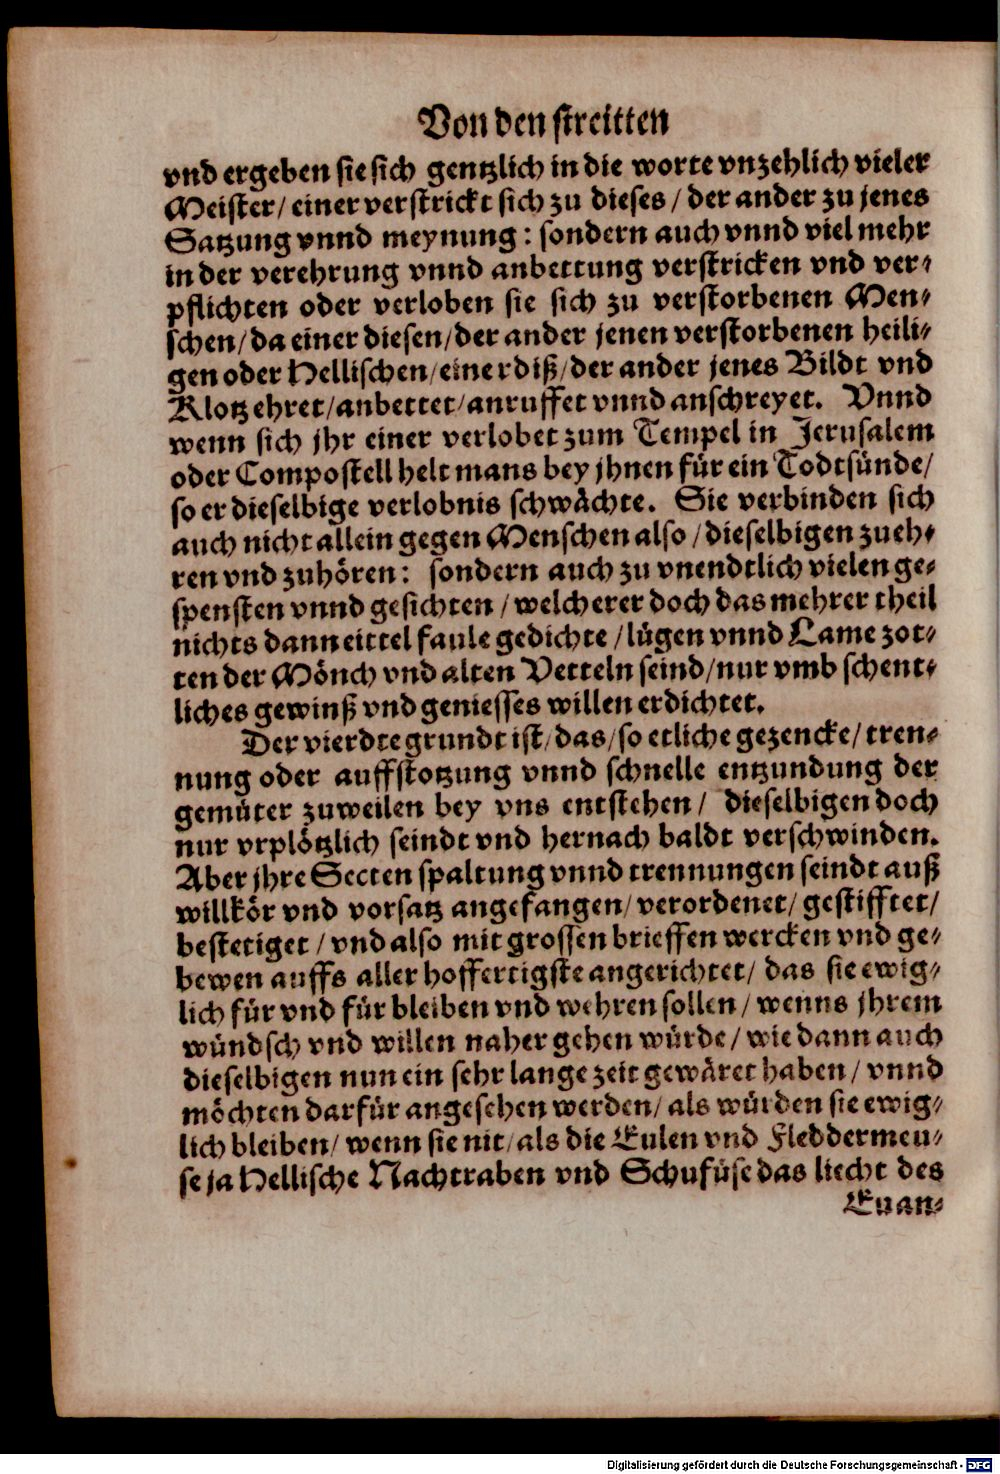 Von den streitten
vnd ergeben sie sich gentzlich in die worte vnzehlich vieler
Meister/ einer verstrickt sich zu dieses / der ander zu jenes
Satzung vnnd meynung: sondern auch vnnd viel mehr
in der verehrung vnnd anbettung verstricken vnd ver-
pflichten oder verloben sie sich zu verstorbenen Men-
schen/ da einer diesen/ der ander jenen verstorbenen heili-
gen oder Hellischen/ einer diß/ der ander jenes Bildt vnd
Klotz ehret/ anbettet/ anruffet vnnd anschreyet. Vnnd
wenn sich jhr einer verlobet zum Tempel in Jerusalem
oder Compostell helt mans bey jhnen für ein Todtsünde/
so er dieselbige verlobnis schwächte. Sie verbinden sich
auch nicht allein gegen Menschen also / dieselbigen zu eh-
ren vnd zuhören: sondern auch zu vnendtlich vielen ge-
spensten vnnd gesichten / welcherer doch das mehrer theil
nichts dann eittel faule gedichte / lügen vnnd Lame zot-
ten der Mönch vnd alten Vetteln seind/ nur vmb schent-
liches gewinß vnd geniesses willen erdichtet.
Der vierdte grundt ist/ das/ so etliche gezencke/ tren-
nung oder auffstotzung vnnd schnelle entzundung der
gemüter zuweilen bey vns entstehen/ dieselbigen doch
nur vrplötzlich seindt vnd hernach baldt verschwinden.
Aber jhre Secten spaltung vnnd trennungen seindt auß
willkör vnd vorsatz angefangen/ verordenet/ gestifftet/
bestetiget / vnd also mit grossen brieffen wercken vnd ge-
bewen auffs aller hoffertigste angerichtet/ das sie ewig-
lich für vnd für bleiben vnd wehren sollen / wenns jhrem
wündsch vnd willen naher gehen würde / wie dann auch
dieselbigen nun ein sehr lange zeit gewäret haben / vnnd
möchten darfür angesehen werden/ als würden sie ewig-
lich bleiben/ wenn sie nit/ als die Eulen vnd Fleddermeu-
se ja Hellische Nachtraben vnd Schufüse das liecht des
Euan-
Digitalisierung gefördert durch die Deutsche Forschungsgemeinschaft - DFG